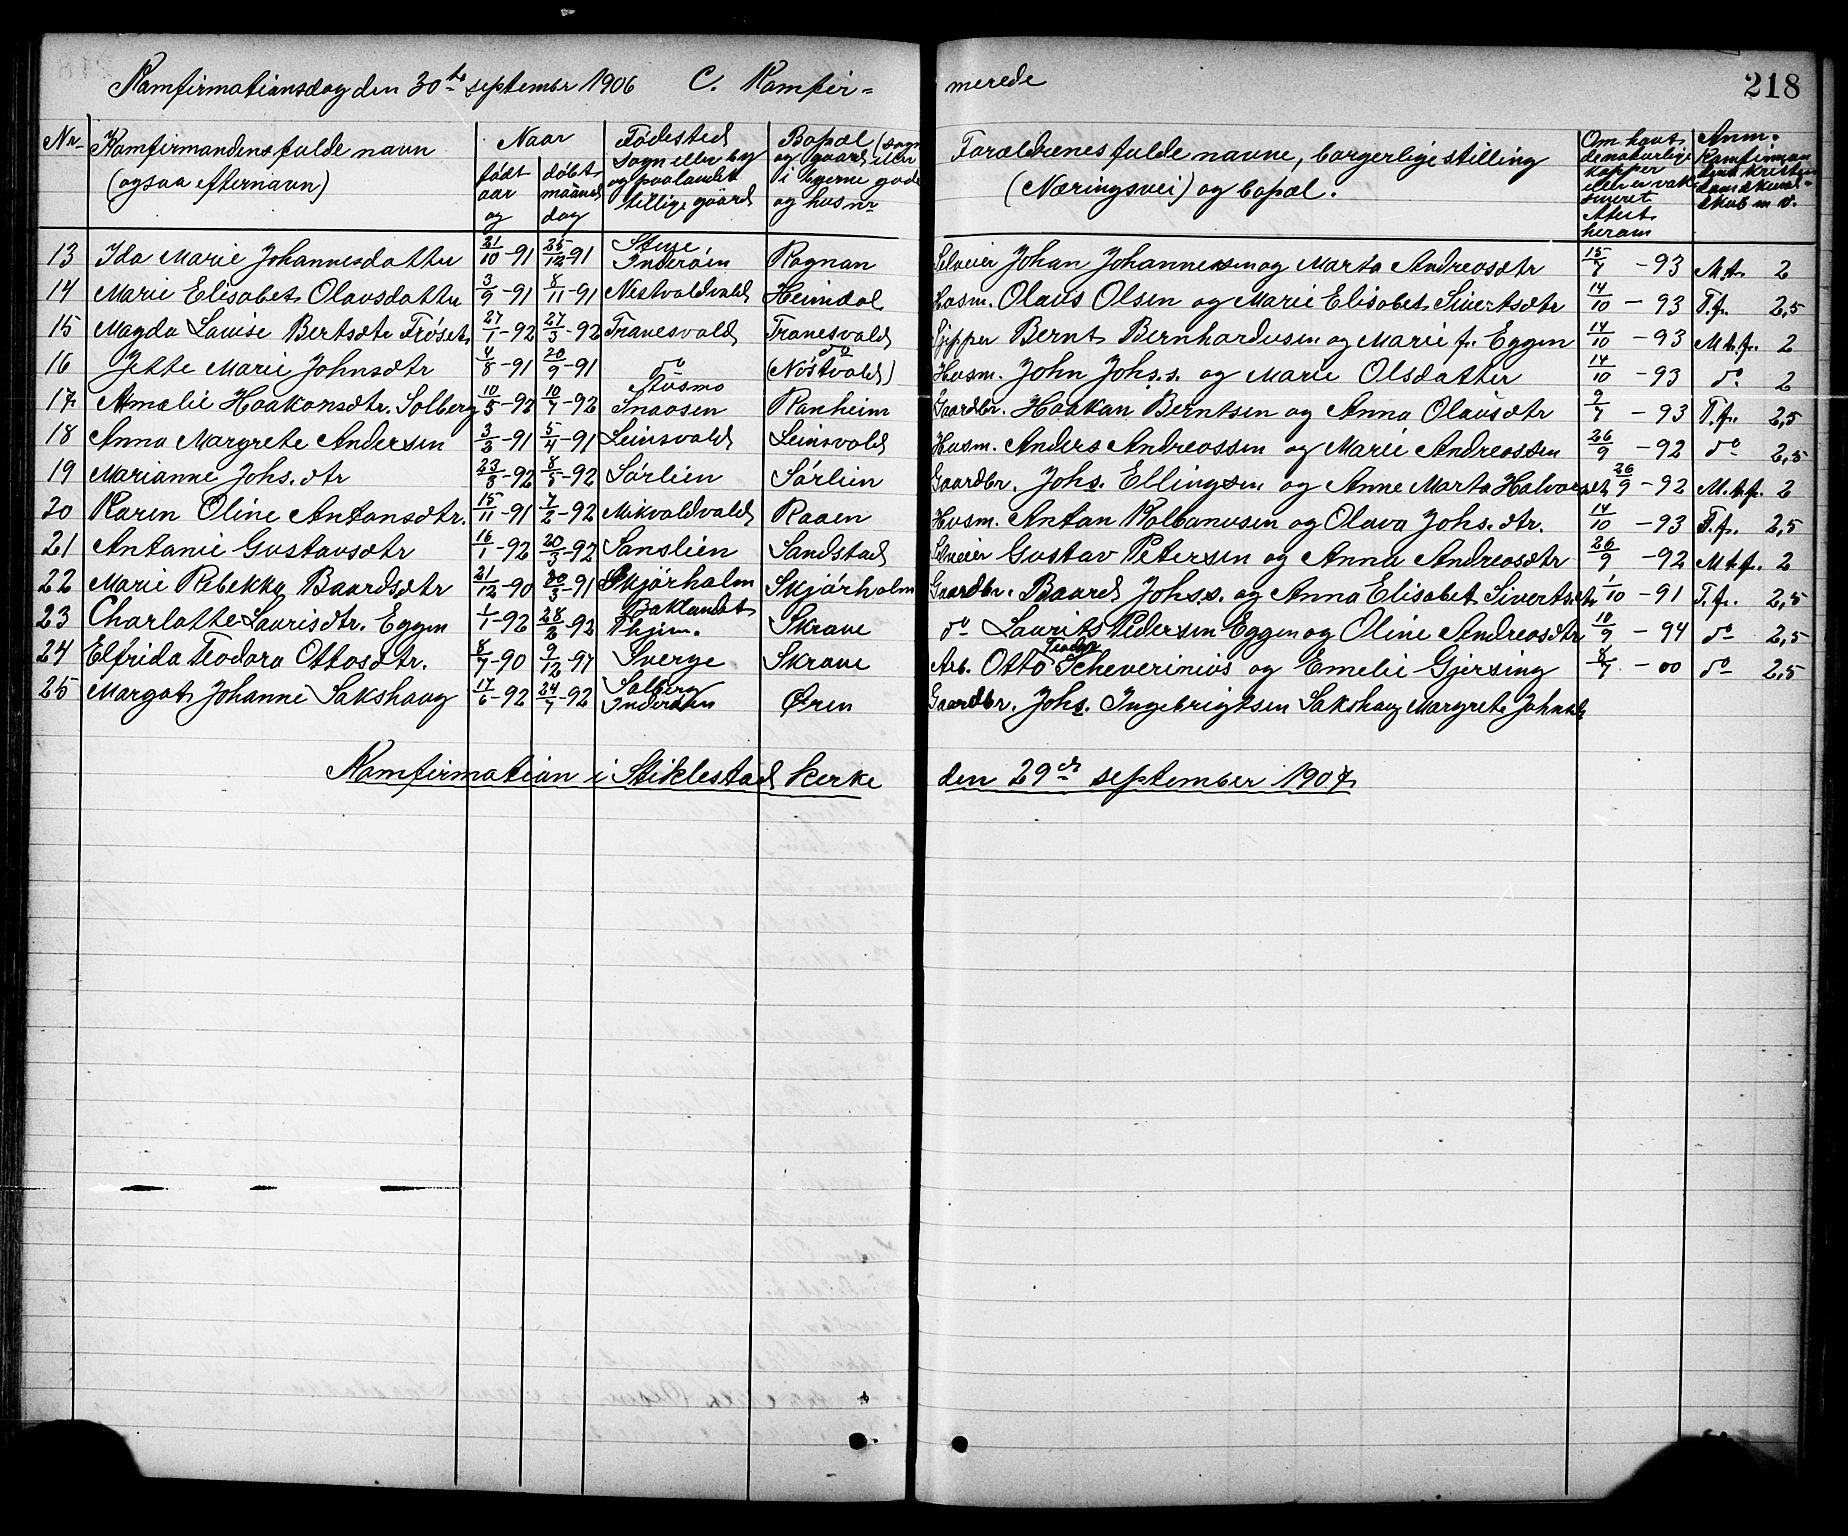 Konfirmationsdag den 30te september 1906 C. Konfir= merede 218
Nr Konfirmandens fulde navn (ogsaa efternavn) Naar født aar og døbt maaned dag Fødested Sogn eller by og paalandet tillige gaard Bopæl (sogn og gaard eller i byerne gade og hus nr Forældrenes fulde navne, borgerlige stilling (Næringsvei) og bopæl. Om havt de naturlige kopper eller er vaksineret Attest herom Anm. Konfirmandens kristendomskundskab m.v.
13 Ida Marie Johannesdatter 21/10-91 25/12-91 Inderøen Rognan Selveier Johan Johannessen og Marta Andreasdtr 15/7-93 M.t. 2
14 Marie Elisabet Olausdatter 3/9-91 8/11-91 Nestvoldvald Heimdal Husm. Olaus Olsen og Marie Elisabet Sivertsdtr 14/10-93 T.f. 2,5
15 Magda Lovise Bertsdtr Frøset 27/1-92 27/3-92 Tranesvald Tranesvald Sjipper Bernt Bernhardusen og Marie f. Eggen 14/10-93 M.t.f. 2
16 Jette Marie Johnsdtr 4/8-91 20/9-91 do do (Nøstvald) Husm. John Johs.s. og Marie Olsdatter 14/10-93 do 2
17 Amalie Haakonsdtr. Solberg 10/5-92 10/7-92 Snaasen Ranheim Gaardbr. Haakan Berntsen og Anna Olausdtr 9/7-93 T.f. 2,5
18 Anna Margrete Andersen 3/3-91 5/4-91 Leinsvald Leinsvald Husm. Anders Andreassen og Marie Andreassen 26/9-92 do 2,5
19 Marianne Johs.dtr 23/8-92 8/5-92 Sørlien Sørlien Gaardbr. Johs. Ellingsen og Anne Marta Halvorsdtr 26/9-92 M.t.f. 2
20 Karen Oline Antonsdtr. 15/11-91 7/2-92 Mikvoldvald Raaen Husm. Anton Kolbanusen og Olava Johs.dtr. 14/10-93 T.f. 2,5
21 Antonie Gustavsdtr 16/1-92 20/3-92 Sanslien Sandstad Selveier Gustav Petersen og Anna Andreasdtr 26/9-92 M.t.f. 2
22 Marie Rebekka Baardsdtr 21/12-90 30/3-91 Skjørholm Skjørholm Gaardbr. Baard Johs.s. og Anna Elisabet Sivertsdtr 1/10-91 T.f. 2,5
23 Charlotte Laurisdtr. Eggen 1/1-92 28/2-92 Baklandet Thjem. Skrove do Laurits Pedersen Eggen og Oline Andreasdtr 10/9-94 do 2,5
24 Elfrida Teodora Ottosdtr. 8/7-90 9/12-97 Sverge Skrove Arb. Otto Teodor Scheverinius og Emelie Gjersing 8/7-00 do 2,5
25 Margot Johanne Sakshaug 17/6-92 24/7-92 Solberg Inderøen Øren Gaardbr. Johs. Ingebrigtsen Sakshaug Margrete Johnsdtr
Konfirmation i Stiklestad kerke den 29de september 1907